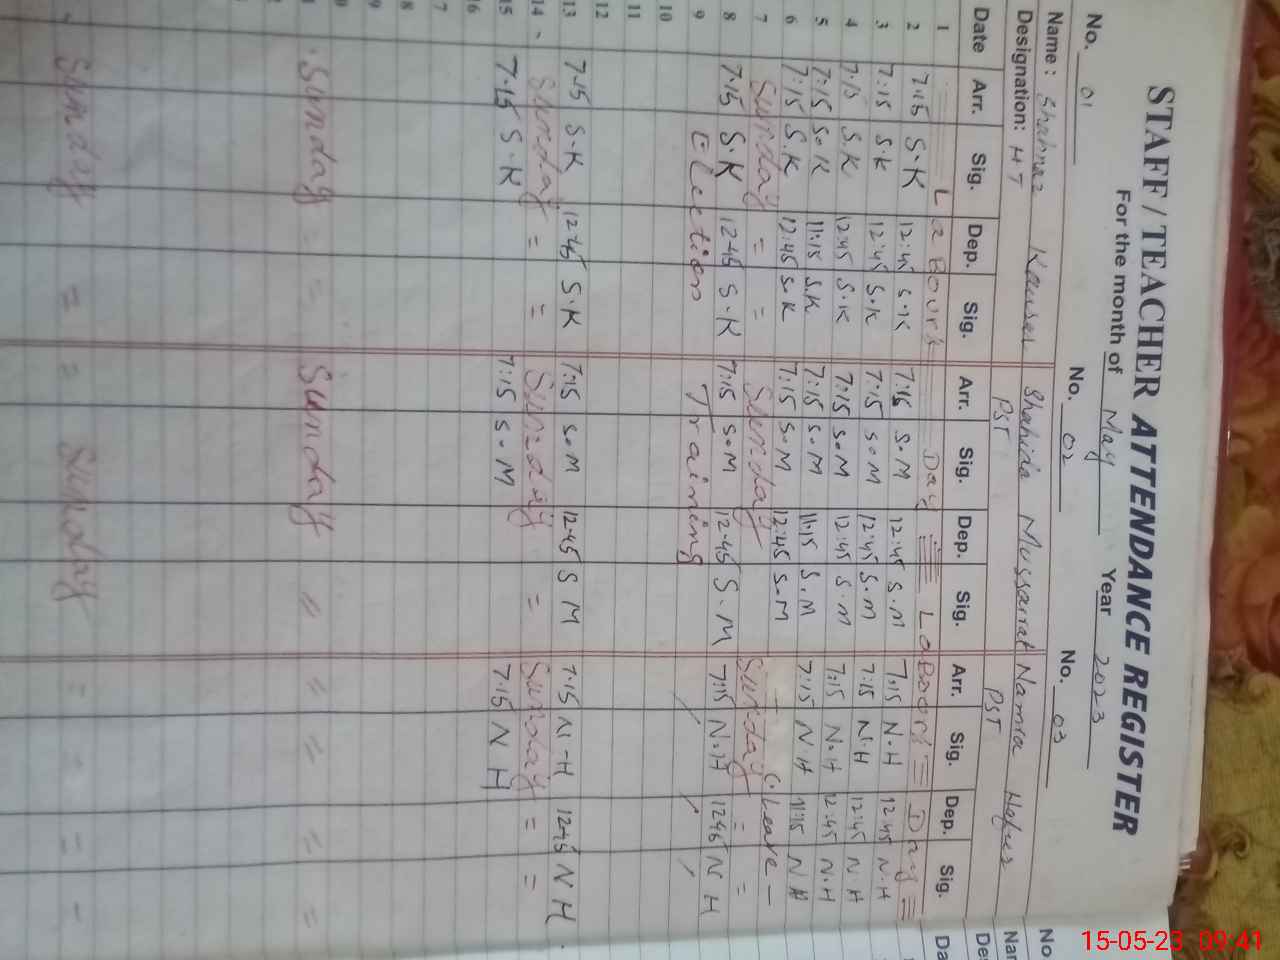 STAFF / TEACHER ATTENDANCE REGISTER
For the month of May Year 2023
No. 01 No. 02 No. 03 No
Name : Shahnaz Kausar Shahida Mussarrat Namra Nam
Designation: HT PST PST Des
Date Arr. Sig. Dep. Sig. Arr. Sig. Dep. Sig. Arr. Sig. Dep. Sig. Da
1 LaBour's Day LaBour's Day
2 7:15 S.K 12:45 S.K 7:15 S.M 12:45 S.M 7:15 N.H 12:45 N.H
3 7:15 S.K 12:45 S.K 7:15 S.M 12:45 S.M 7:15 N.H 12:45 N.H
4 7:15 S.K 12:45 S.K 7:15 S.M 12:45 S.M 7:15 N.H 12:45 N.H
5 7:15 S.K 11:15 S.K 7:15 S.M 11:15 S.M 7:15 N.H 11:15 N.H
6 7:15 S.K 12:45 S.K 7:15 S.M 12:45 S.M C.Leave -
7 Sunday = = Sunday Sunday = =
8 7:15 S.K 12-45 S.K 7:15 S.M 12-45 S.M 7:15 N.H 12:45 N H
9 Election Training
10
11
12
13 7-15 S.K 12-45 S.K 7:15 S.M 12-45 S M 7.15 N-H 12:45 N H.
14 Sunday = = Sunday = Sunday = =
15 7-15 S.K 7:15 S.M 7:15 N H
16
7
8
9
Sunday = = Sunday " " = = =
Sunday = = Sunday = = = -
15-05-23 09:41